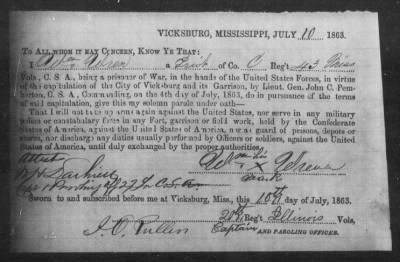 VICKSBURG, MISSISSIPPI, JULY 10 1863.
TO ALL WHOM IT MAY CONCERN, KNOW YE THAT:
I a of Co. C Reg't 43 Miss
Vols., C. S. A., being a prisoner of War, in the hands of the United States Forces, in virtue
of the capitulation of the City of Vicksburg and its Garrison, by Lieut. Gen. John C. Pem-
berton, C. S. A., Commanding, on the 4th day of July, 1863, do in pursuance of the terms
of said capitulation, give this my solemn parole under oath—
That I will not take up arms again against the United States, nor serve in any military
police or constabulary force in any Fort, garrison or field work, held by the Confederate
States of America, against the United States of America, nor as guard of prisons, depots or
stores, nor discharge any duties usually performed by Officers or soldiers, against the United
States of America, until duly exchanged by the proper authorities.
Attest his
X
mark
Sworn to and subscribed before me at Vicksburg, Miss., this 10th day of July, 1863.
20th Reg't Illinois Vols,
J. O. Pullen Captain AND PAROLING OFFICER.